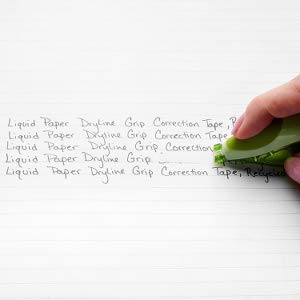 Liquid Paper Dryline Grip Correction Tape,
Liquid Paper Dryline Grip Correction Tape
Liquid Paper Dryline Grip Correction
Liquid Paper Dryline Grip
Liquid Paper Dryline Grip Correction Tape, Recycled